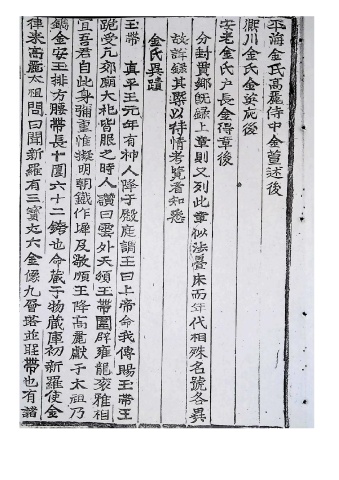 平海金氏高麗侍中金萱述後
川金氏金英庇後
安老金氏戶長金得章後
分封貫鄕旣録上章則又列此章似涉疊床而年代相殊名號各異
故詳録其槩以待情考覽者知悉
金氏異蹟
玉帶 真平王元年有神人降于殿庭謂王曰上帝命我傳賜玉帶王
跪受凡郊廟大祀皆服之時人讚曰雲外天頒玉帶圍辟雍龍袞雅相
宜吾君自此身彌重惟擬明朝鐵作墀及敬順王降高麗獻于太祖乃
鐫金安玉排方腰帶長十圍六十二銙也命蔵于物蔵庫初新羅使金
律來高麗太祖問曰聞新羅有三寶丈六金像九層塔並聖帶也有諸